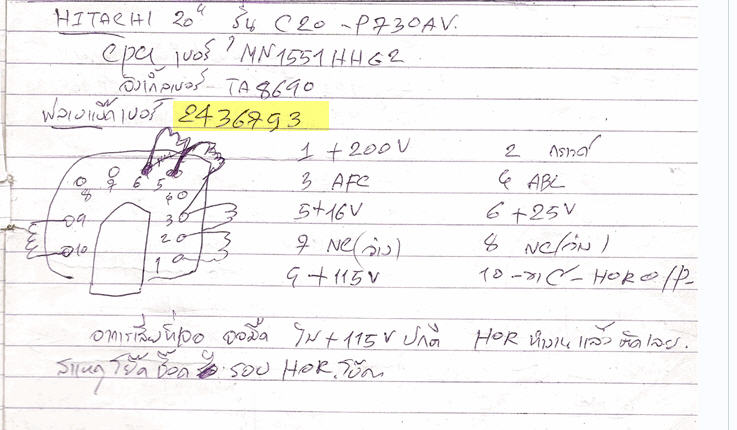 HITACHI 20" รุ่น C20-P730AV.
cpu เบอร์ MN1551HHG2
จังเกิ้ลเบอร์ - TA8690
ฟลายแบ็คเบอร์ 2436793
1 +200V 2 กราวด์
3 AFC 4 ABL
5+16V 6 +25V
7 NC(ว่าง) 8 NC(ว่าง)
9 +115V 10 -ขาC- HOR O/P-
8 7 6 5
4
9 3
10 2
1
อาการเสียที่เจอ จอมืด ไฟ +115V ปกติ HOR ทำงานแล้วตัดเลย.
สาเหตุ โย๊คช๊อต รอบ HOR.